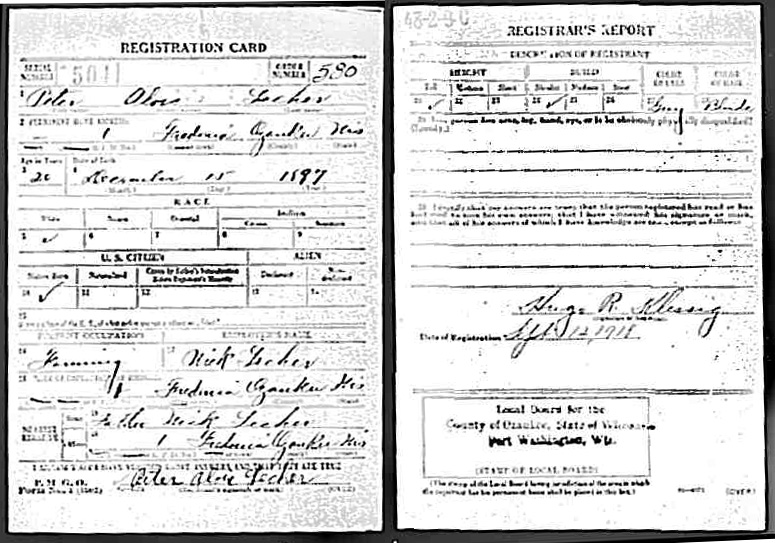 REGISTRATION CARD
SERIAL NUMBER 501 ORDER NUMBER 580
1 Peter Alois Lecher
2 PERMANENT HOME ADDRESS
1 Fredonia Ozaukee Wis
Age in Years Date of Birth
3 20 4 December 15 1897
RACE
White Negro Oriental Indian
Citizen Noncitizen
5 ✓ 6 7 8 9
U. S. CITIZEN ALIEN
Native Born Naturalized Citizen by Father's Naturalization Before Registrant's Majority Declarant Non-declarant
10 ✓ 11 12 13 14
15
PRESENT OCCUPATION EMPLOYER'S NAME
16 Farming 17 Nick Lecher
18 1 Fredonia Ozaukee Wis
NEAREST RELATIVE Name 19 Father Nick Lecher
20 1 Fredonia Ozaukee Wis
I AFFIRM THAT I HAVE VERIFIED ABOVE ANSWERS AND THAT THEY ARE TRUE
P. M. G. O.
Form No. 1 (Red) Peter Alois Lecher (OVER)
REGISTRAR'S REPORT
DESCRIPTION OF REGISTRANT
HEIGHT BUILD COLOR OF EYES COLOR OF HAIR
Tall Medium Short Slender Medium Stout
21 ✓ 22 23 24 ✓ 25 26 27 Gray Blonde
29 Has person lost arm, leg, hand, eye, or is he obviously physically disqualified?
(Specify.)
30 I certify that my answers are true; that the person registered has read or has
had read to him his own answers; that I have witnessed his signature or mark,
and that all of his answers of which I have knowledge are true, except as follows:
Hugo R. Klessig
Date of Registration Sept 12, 1918
Local Board for the
County of Ozaukee, State of Wisconsin
Port Washington, Wis.
(STAMP OF LOCAL BOARD)
(The stamp of the Local Board having jurisdiction of the area in which
the registrant has his permanent home shall be placed in this box.)
(OVER)